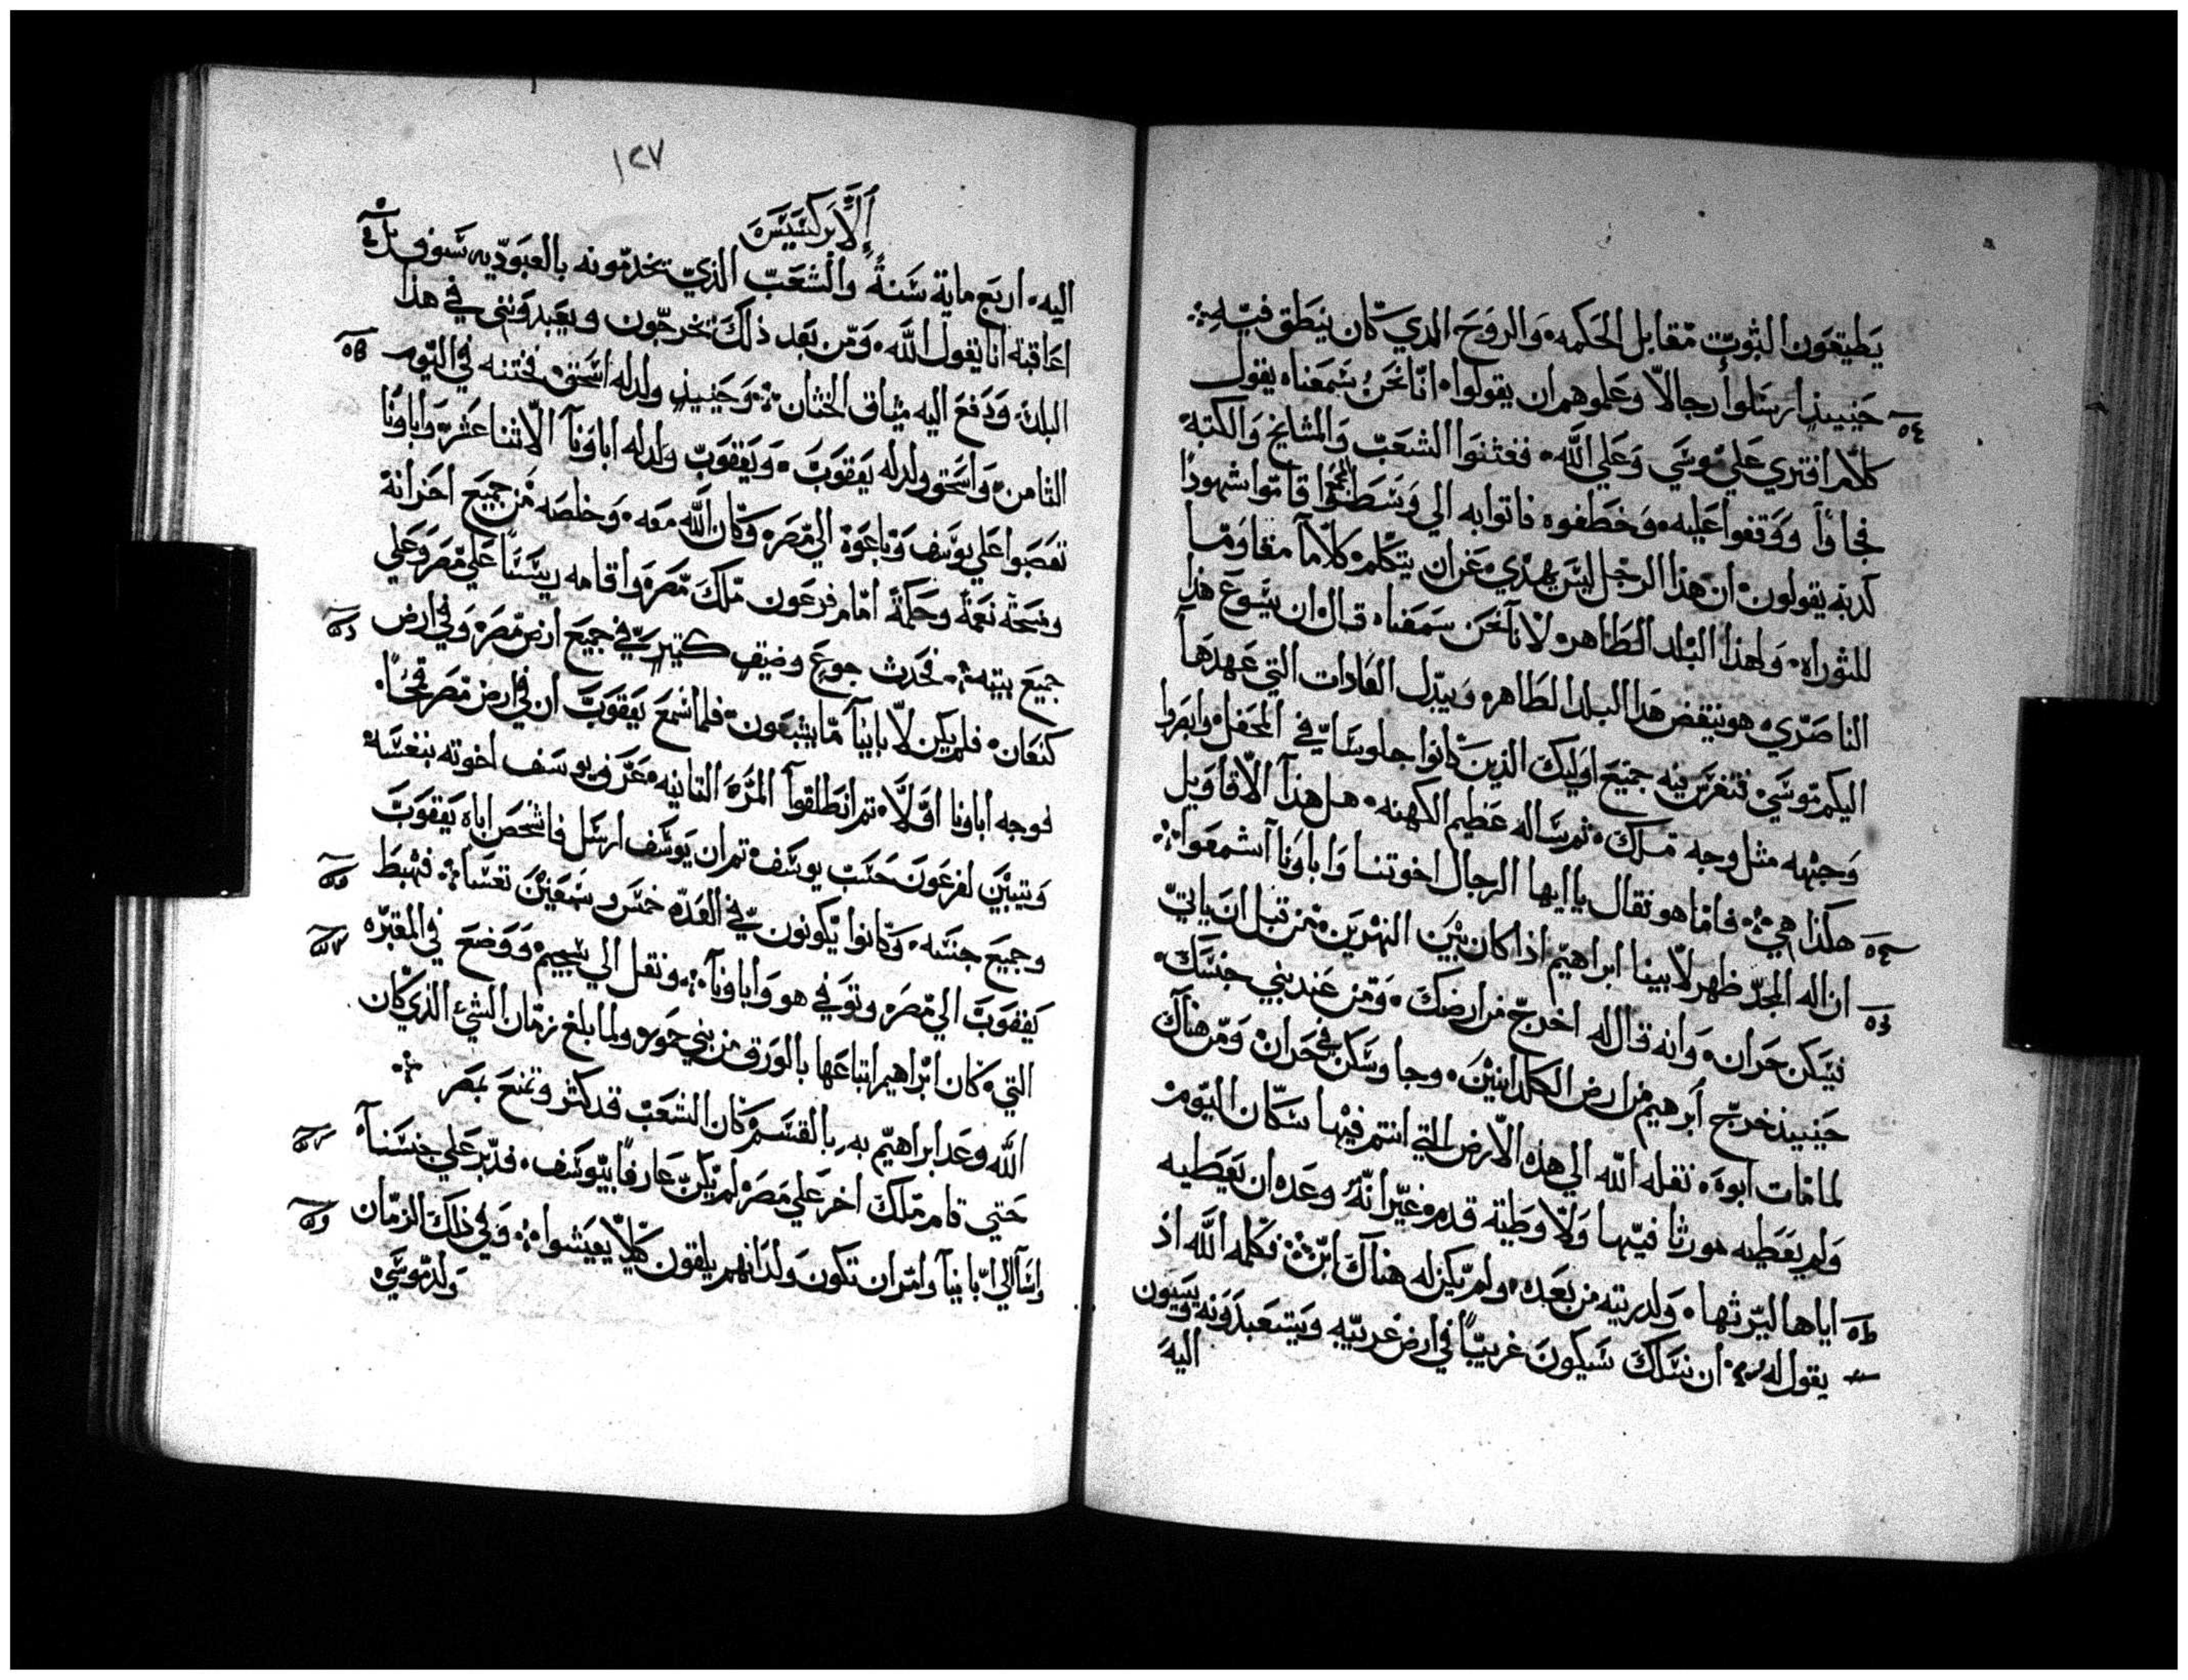 يطيقون الثبوت مقابل الحكمه والروح الدي كان ينطق فيه
حينيذ ارسلوا رجالا وعلموهم ان يقولوا انا نحن سمعناه يقول
كلام افتري علي موسي وعلي الله ففتنوا الشعب والمشايخ والكتبه
فجاوا ووقفوا عليه وخطفوه فاتوا به الي وسط المجمع اقاموا شهودا
كدبه يقولون ان هذا الرجل ليس يهدي عن ان يتكلم كلاما مقاوما
للتوراه ولهذا البلد الطاهر لاننا نحن سمعناه قال ان يسوع هذا
الناصري هو ينقض هذا البلد الطاهر ويبدل العادات التي عهدها
اليكم موسي فتفرس فيه جميع اوليك الذين كانوا جلوسا في المحفل وابصروا
وجهه مثل وجه ملاك ثم ساله عظيم الكهنه هل هذا الاقاويل
هكذا هي فاما هو فقال يا ايها الرجال اخوتنا وابانا اسمعوا
ان اله المجد ظهر لابينا ابراهيم اذ كان بين النهرين من قبل ان ياتي
يسكن حران وانه قال له اخرج من ارضك ومن عند بني جنسك
حينيذ خرج ابرهيم من ارض الكلدانيين وجا وسكن في حران ومن هناك
لما مات ابوه نقله الله الي هذه الارض التي انتم فيها سكان اليوم
ولم يعطه مورثا فيها ولا وطية قدم غير انه وعده ان يعطيه
اياها ليرثها ولدريته من بعده ولم يكن له هناك ابن فكلمه الله اذ
يقول له ان نسلك سيكون غريبا في ارض غريبه ويتعبدونه ويسيون
اليه
١٢٧
الابركسيس
اليه اربع ماية سنة والشعب الذي تخدمونه بالعبوديه سوف
اعاقبه انا يقول الله ومن بعد ذلك تخرجون ويعبدونني في هذا
البلد ودفع اليه ميثاق الختان وحينيذ ولد له اسحق فختنه في اليوم
الثامن واسحق ولد له يعقوب ويعقوب ولد له اباونا الاثنا عشر واباونا
تعصبوا علي يوسف وباعوه الي مصر وكان الله معه وخلصه من جميع احزانه
ومنحه نعمة وحكمة امام فرعون ملك مصر واقامه رييسا علي مصر وعلي
جميع بيته فحدث جوع وضيق كتير في جميع ارض مصر وفي ارض
كنعان فلم يكن لابابنا ما يشبعون فلما سمع يعقوب ان في ارض مصر قمحا
فوجه ابانا اولا ثم انطلقوا المره التانيه عرف يوسف اخوته بنفسه
وتبين لفرعون حسب يوسف تم ان يوسف ارسل فاشخص اباه يعقوب
وجميع جنسه وكانوا يكونون في العده خمس وسبعين نفسا فهبط
يعقوب الي مصر وتوفي هو واباونا ونقل الي شجيم ووضع في المقبره
التي كان ابراهيم ابتاعها بالورق من بني حمور ولما بلغ زمان الشي الذي كان
الله وعد ابراهيم به بالقسم كان الشعب قد كثر وتمنع بمصر
حتي قام ملك اخر علي مصر لم يكن عارفا بيوسف فدبر علي جنسنا
واسا الي ابابنا وامر ان تكون ولدانهم يلقون كيلا يعيشوا وفي ذلك الزمان
ولد موسي